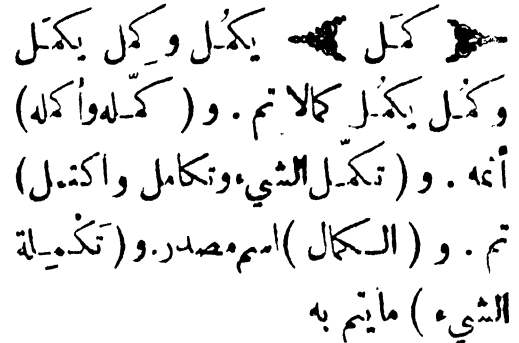 ﴿ كمَل ﴾ يكمُل وكمِل يكمَل
وكمُل يكمُل كمالا تم . و ( كمّله وأكمله )
أتمه . و ( تكمّل الشيء وتكامل واكتمل )
تم . و ( الكمال ) اسم مصدر . و ( تَكْمِلة
الشيء ) ما يتم به